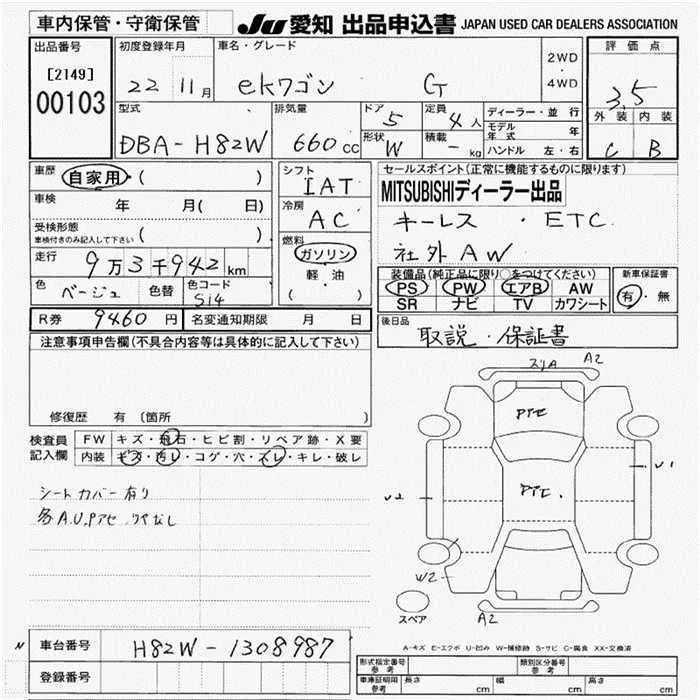 車内保管・守衛保管
JU 愛知 出品申込書 JAPAN USED CAR DEALERS ASSOCIATION
出品番号
[2149]
00103
初度登録年月
22 11月
車名・グレード
ekワゴン G
2WD
・
4WD
評価点
3.5
外装 内装
C B
型式
DBA-H82W
排気量
660cc
ドア 5
形状 W
定員 4人
積載 - kg
ディーラー・並行
モデル年式 年
ハンドル 左・右
車歴 自家用・( )
車検 年 月( 日)
受検形態
車検付きのみ記入して下さい ( )
走行 9万3千942km
色 ベージュ 色替 色コード S14
シフト
IAT
冷房
AC
燃料
ガソリン
軽・油
( )
セールスポイント(正常に機能するものに限ります)
MITSUBISHIディーラー出品
キーレス ・ ETC
社外AW
装備品(純正品に限り○をつけてください)
PS PW エアB AW
SR ナビ TV カワシート
新車保証書
有・無
R券 9460円 名変通知期限 月 日
後日品
取説・保証書
注意事項申告欄(不具合内容等は具体的に記入して下さい)
修復歴 有 (箇所 )
検査員記入欄
FW キズ・飛石・ヒビ割・リペア跡・X要
内装 キズ・汚レ・コゲ・穴・スレ・キレ・破レ
シートカバー有り
各A.U.Pアセ
スリA A2
Pアセ
Pアセ.
U1
U2
W2
A2
スペア
A-キズ E-エクボ U-凹み W-補修跡 S-サビ C-腐食 XX-交換済
N 車台番号 H82W-1308987
登録番号
形式指定番号 参考 類別区分番号 参考
車庫証明用 参考 長さ cm 幅 cm 高さ cm